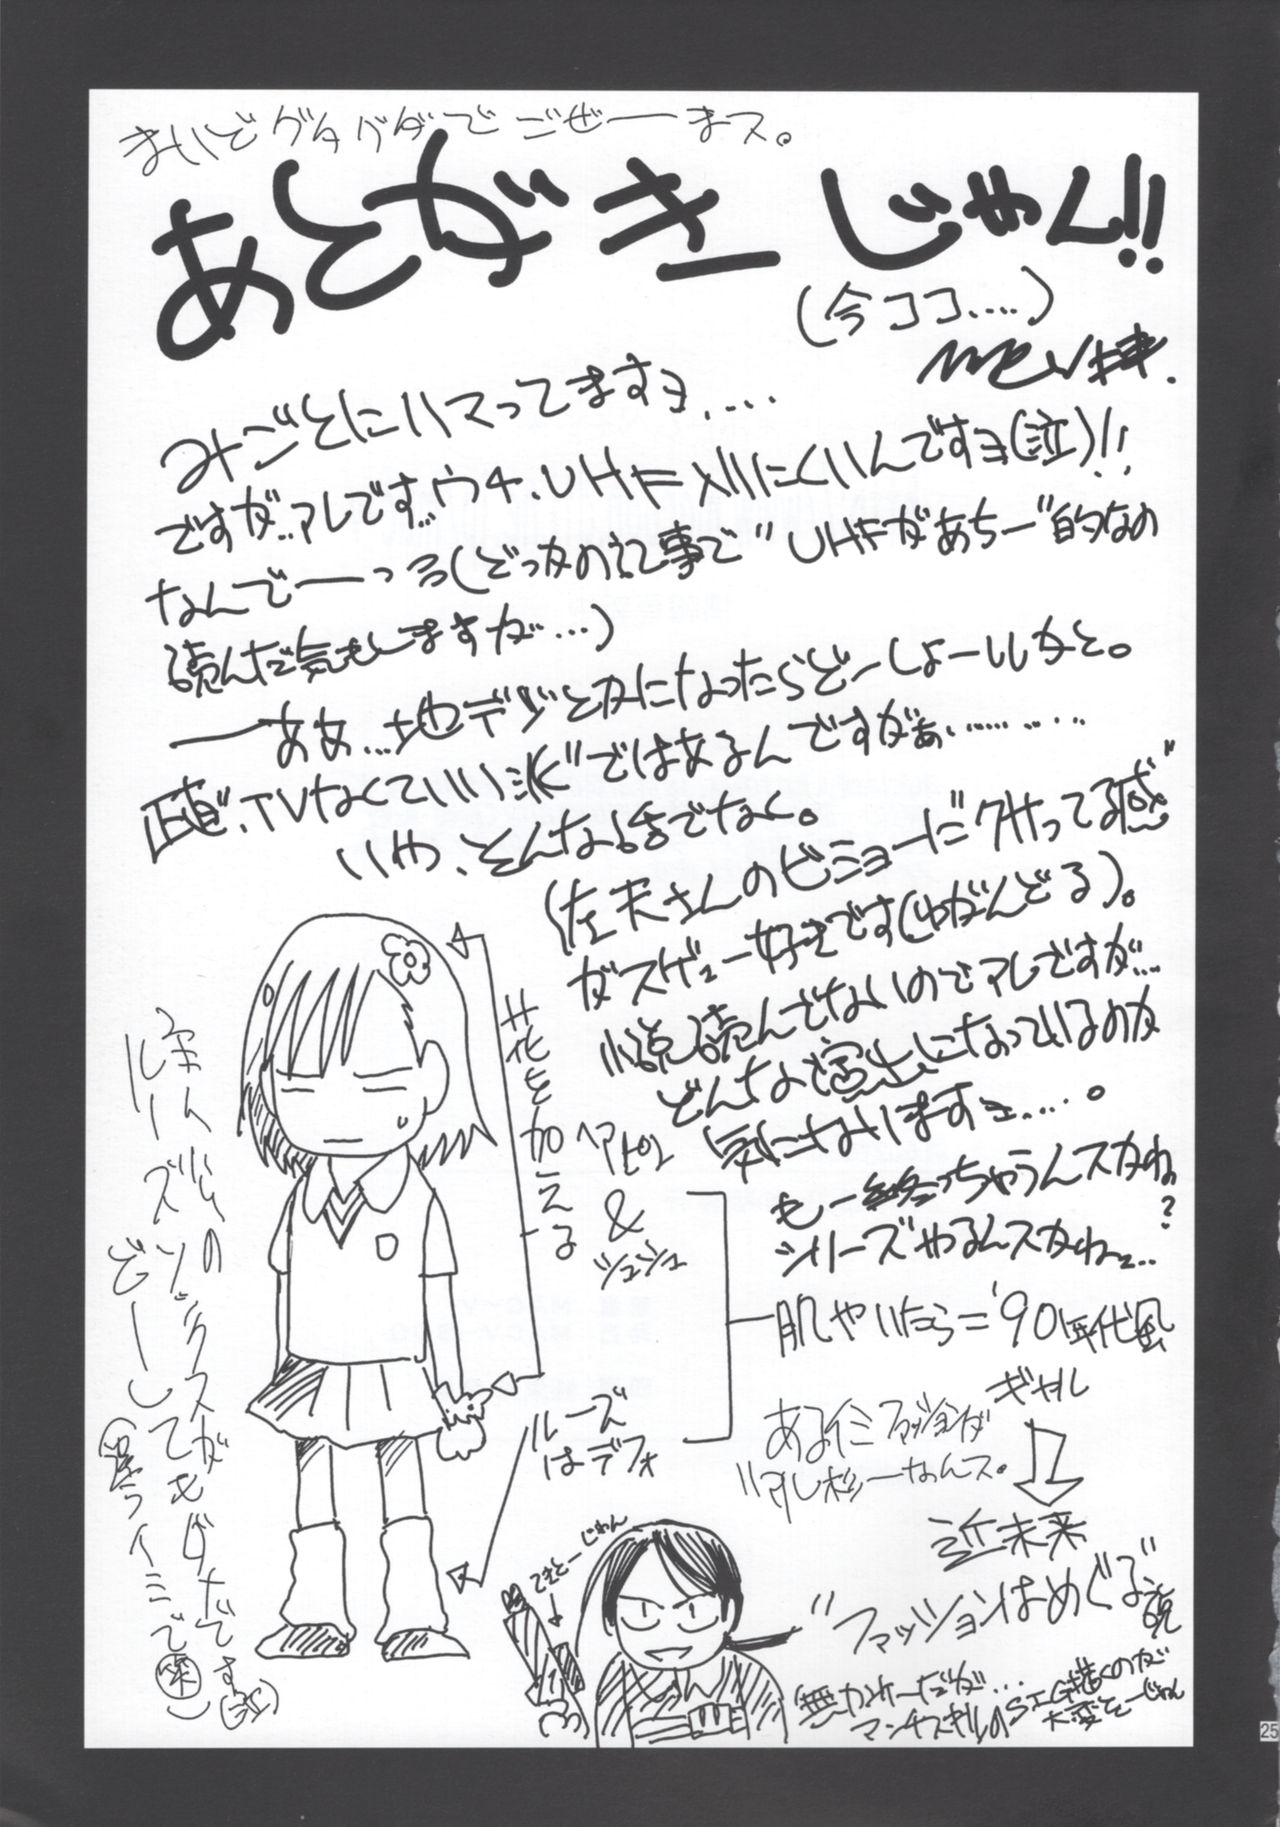 まいどグダグダでごぜーまス。
あとがきじゃん!!
(今ココ....)
みごとにハマってますヨ....
ですが..アレです..ウチ、UHF入りにくいんですヨ(泣)!!
なんでーーっろ(どっかの記事で"UHFがあちー"的なの
読んだ気もしますが...)
ーああ...地デジとかになったらどーしょーいかと。
正直、TVなくていい派"ではあるんですがぁ.........
いや、そんな話でなく。
(左天さんのビミョーにクサってる感"
がスゲェー好きです(ゆがんどる)。
小説読んでないのでアレですが...
どんな演出になっているのか
気になりますヨ....。
もー終っちゃうんスかね?
シリーズやるんスかねェ...
肌やいたら='90年代風
ギャル
あるイミファッションが
ハルし杉ーなんス。
近未来
"ファッションはめぐる"説
花を加える
ヘアピン
&
シュシュ
ルーズ
はデフォ
てきとーじゃん
無力みーだが...
SIG描くのが
大変そーじゃん
ルーズソックスが
どーしてもダメです(泣)
25